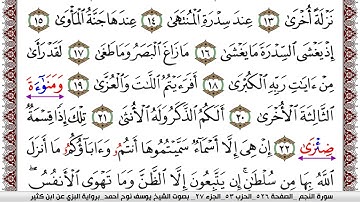 نَزْلَةً أُخْرَىٰ ١٣ عِندَ سِدْرَةِ الْمُنتَهَىٰ ١٤ عِندَهَا جَنَّةُ الْمَأْوَىٰ ١٥
إِذْ يَغْشَى السِّدْرَةَ مَا يَغْشَىٰ ١٦ مَا زَاغَ الْبَصَرُ وَمَا طَغَىٰ ١٧ لَقَدْ رَأَىٰ
مِنْ ءَايَٰتِ رَبِّهِ الْكُبْرَىٰ ١٨ أَفَرَءَيْتُمُ اللَّٰتَ وَالْعُزَّىٰ ١٩ وَمَنَوٰٓءَةَ
الثَّالِثَةَ الْأُخْرَىٰ ٢٠ أَلَكُمُ الذَّكَرُ وَلَهُ الْأُنثَىٰ ٢١ تِلْكَ إِذًا قِسْمَةٌ
ضِئْزَىٰ ٢٢ إِنْ هِيَ إِلَّا أَسْمَاءٌ سَمَّيْتُمُوهَا أَنتُمُ وَءَابَآؤُكُمُ مَا أَنزَلَ
اللَّهُ بِهَا مِن سُلْطَٰنٍ إِن يَتَّبِعُونَ إِلَّا الظَّنَّ وَمَا تَهْوَى الْأَنفُسُ
سورة النجم _ الصفحة ٥٢٦ الحزب ٥٣ _ الجزء ٢٧ _ بصوت الشيخ يوسف نوح أحمد _ برواية البزي عن ابن كثير